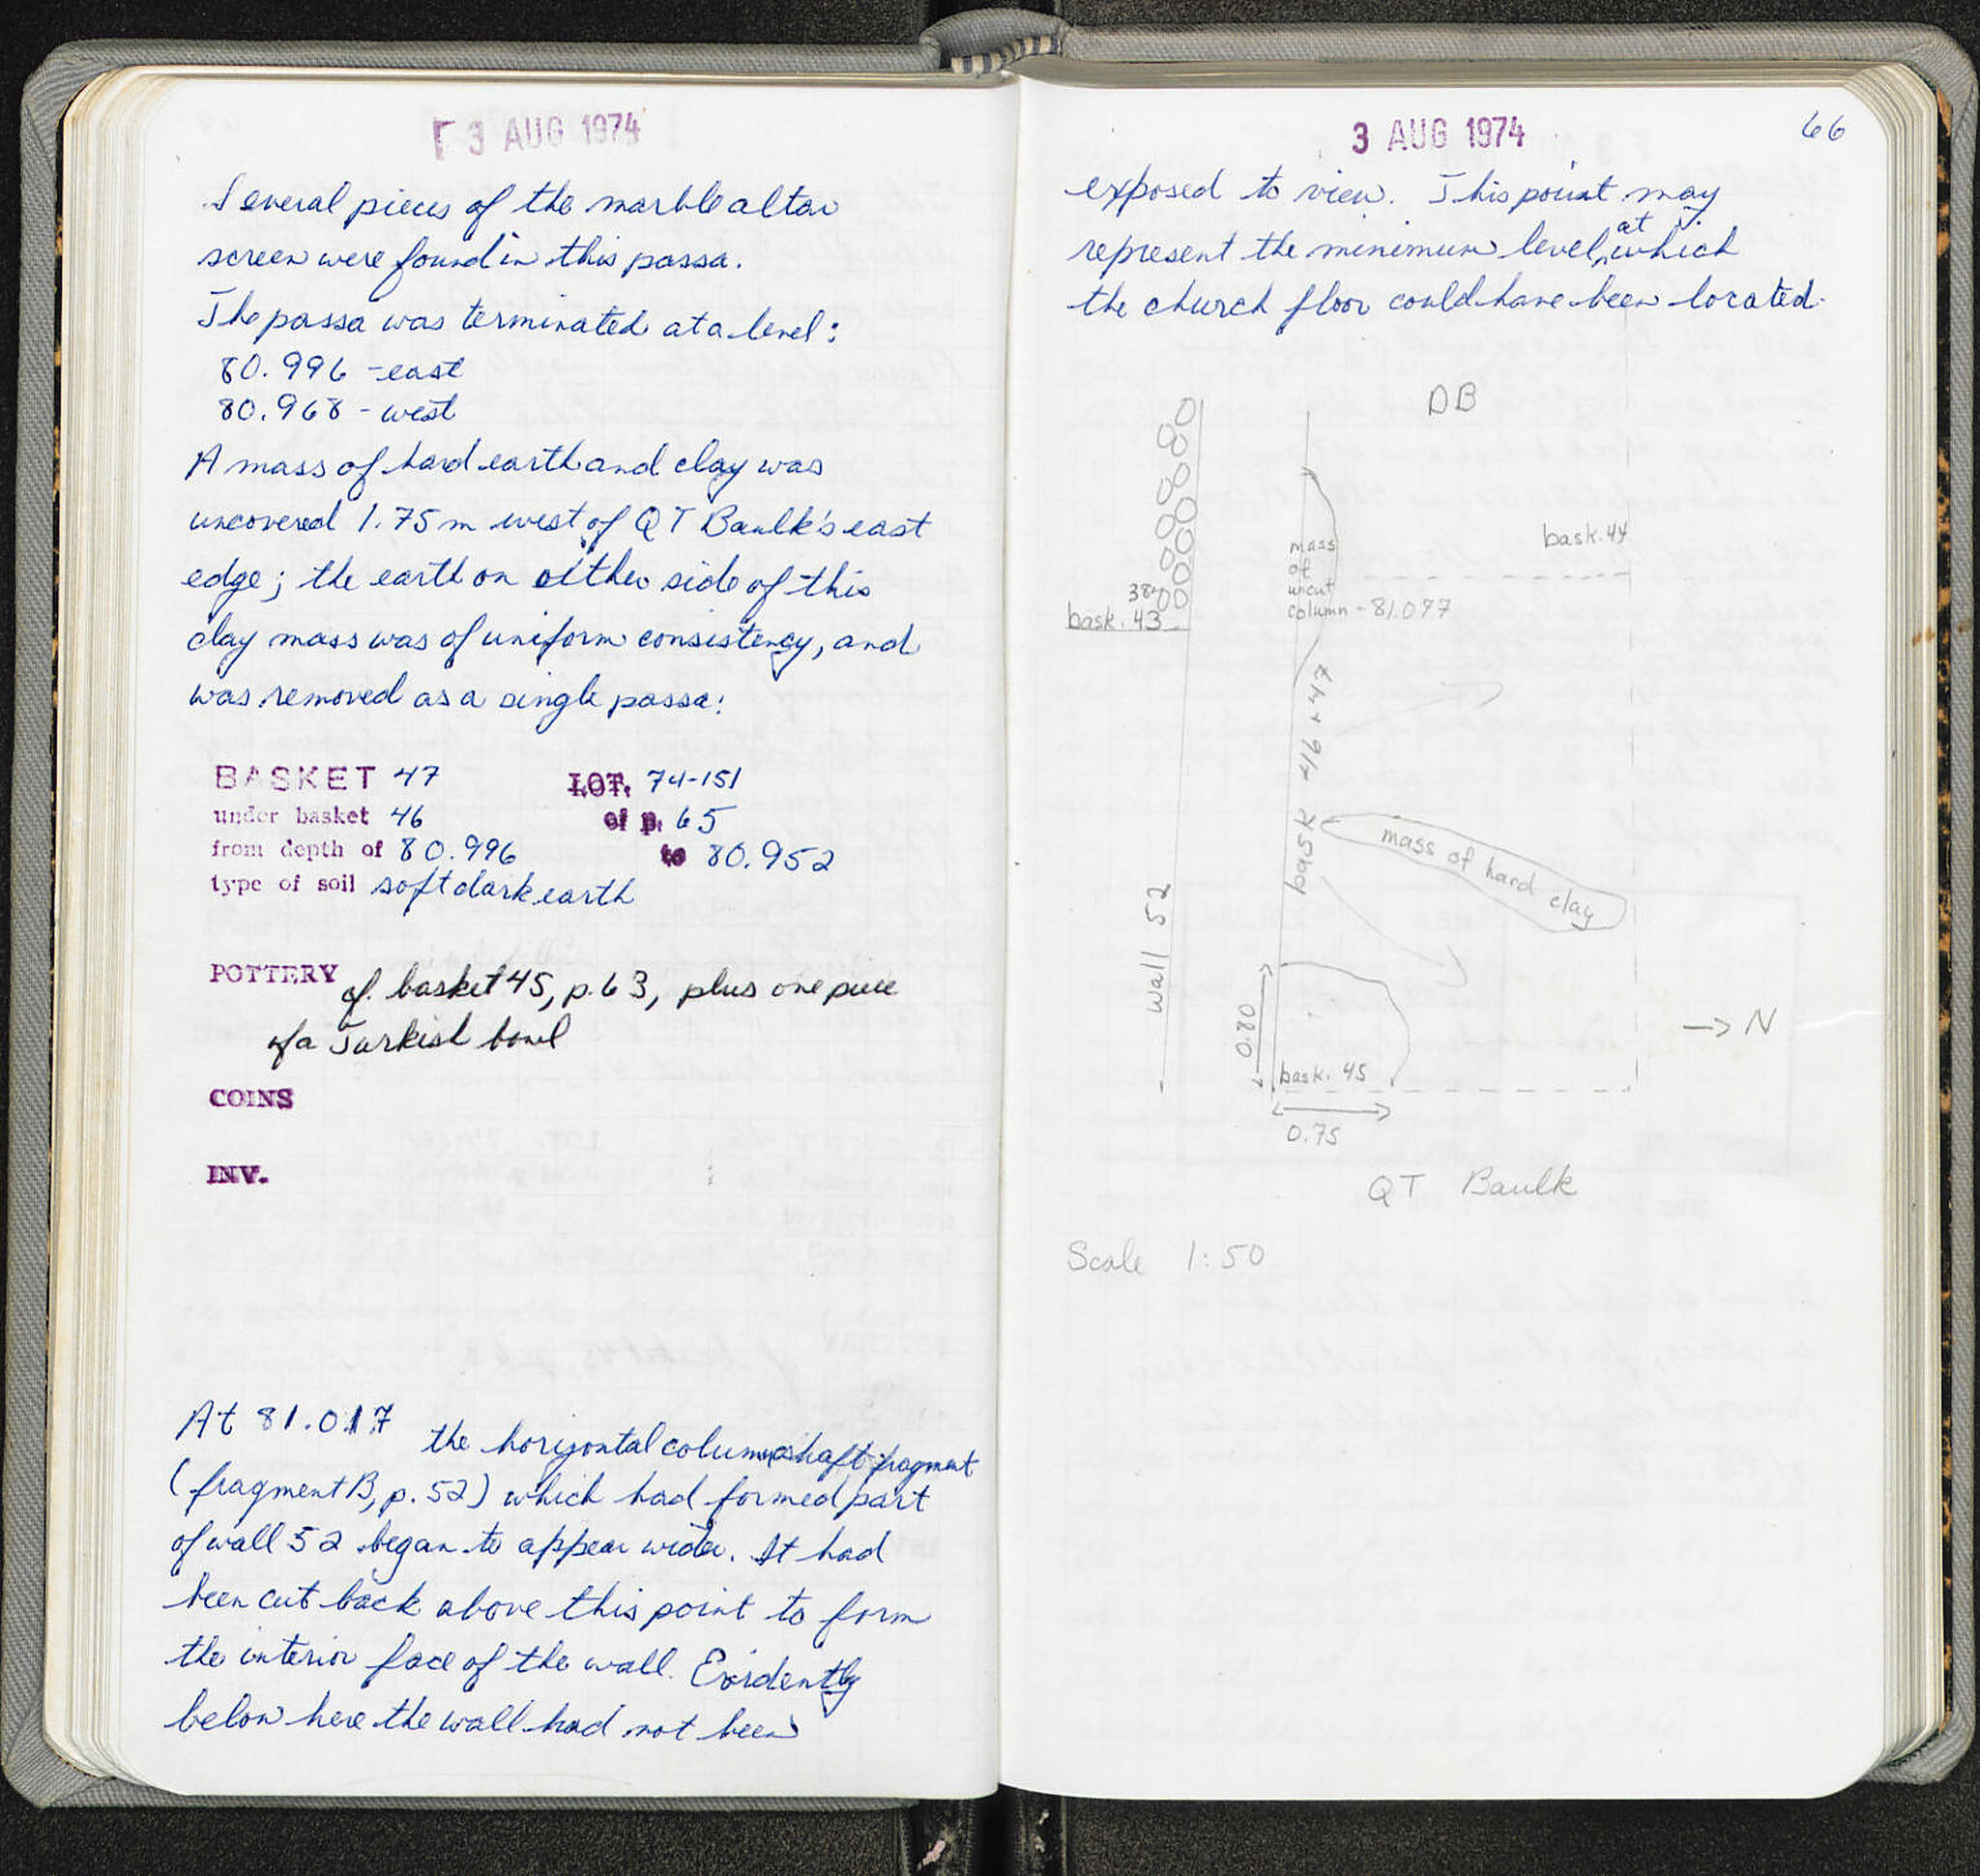 3 AUG 1974
Several pieces of the marble altar
screen were found in this passa.
The passa was terminated at a level:
80.996 - east
80.968 - west
A mass of hard earth and clay was
uncovered 1.75 m west of QT Baulk's east
edge; the earth on either side of this
clay mass was of uniform consistency, and
was removed as a single passa:
BASKET 47 LOT. 74-151
under basket 46 of p. 65
from depth of 80.996 to 80.952
type of soil soft dark earth
POTTERY cf. basket 45, p. 63, plus one piece
of a Turkish bowl
COINS
INV.
At 81.017 the horizontal column shaft fragment
(fragment B, p. 52) which had formed part
of wall 52 began to appear wider. It had
been cut back above this point to form
the interior face of the wall. Evidently
below here the wall had not been
3 AUG 1974
66
exposed to view. This point may
represent the minimum level, at which
the church floor could have been located.
DB
bask. 44
mass
of
uncut
column - 81.077
38
bask. 43
bask 46 + 47
mass of hard clay
wall 52
0.80
bask. 45
0.75
→ N
QT Baulk
Scale 1:50